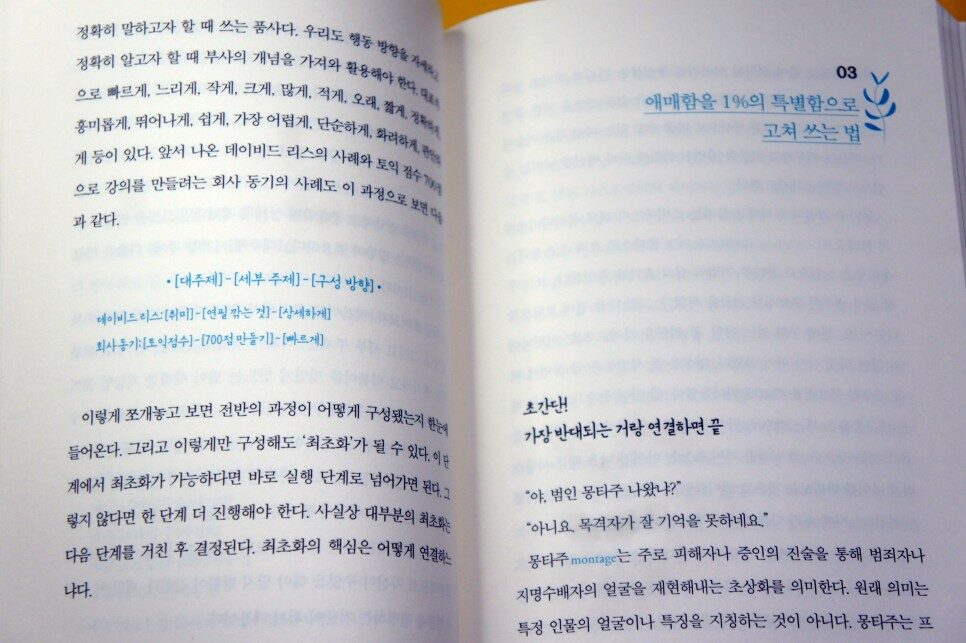 정확히 말하고자 할 때 쓰는 품사다. 우리도 행동 방향을 자세하고
정확히 알고자 할 때 부사의 개념을 가져와 활용해야 한다. 대표적
으로 빠르게, 느리게, 작게, 크게, 많게, 적게, 오래, 짧게, 정확하게,
흥미롭게, 뛰어나게, 쉽게, 가장 어렵게, 단순하게, 화려하게,
게 등이 있다. 앞서 나온 데이비드 리스의 사례와 토익 점수 700점
으로 강의를 만들려는 회사 동기의 사례도 이 과정으로 보면 다음
과 같다.
• [대주제] - [세부 주제] - [구성 방향] •
데이비드 리스:[취미] - [연필 깎는 것] - [상세하게]
회사 동기:[토익점수] - [700점 만들기] - [빠르게]
이렇게 쪼개놓고 보면 전반의 과정이 어떻게 구성됐는지 한눈에
들어온다. 그리고 이렇게만 구성해도 ‘최초화’가 될 수 있다. 이 단
계에서 최초화가 가능하다면 바로 실행 단계로 넘어가면 된다. 그
렇지 않다면 한 단계 더 진행해야 한다. 사실상 대부분의 최초화는
다음 단계를 거친 후 결정된다. 최초화의 핵심은 어떻게 연결하느
냐다.
03
애매함을 1%의 특별함으로
고쳐 쓰는 법
초간단!
가장 반대되는 거랑 연결하면 끝
“야, 범인 몽타주 나왔냐?”
“아니요. 목격자가 잘 기억을 못하네요.”
몽타주montage는 주로 피해자나 증인의 진술을 통해 범죄자나
지명수배자의 얼굴을 재현해내는 초상화를 의미한다. 원래 의미는
특정 인물의 얼굴이나 특징을 지칭하는 것이 아니다. 몽타주는 프